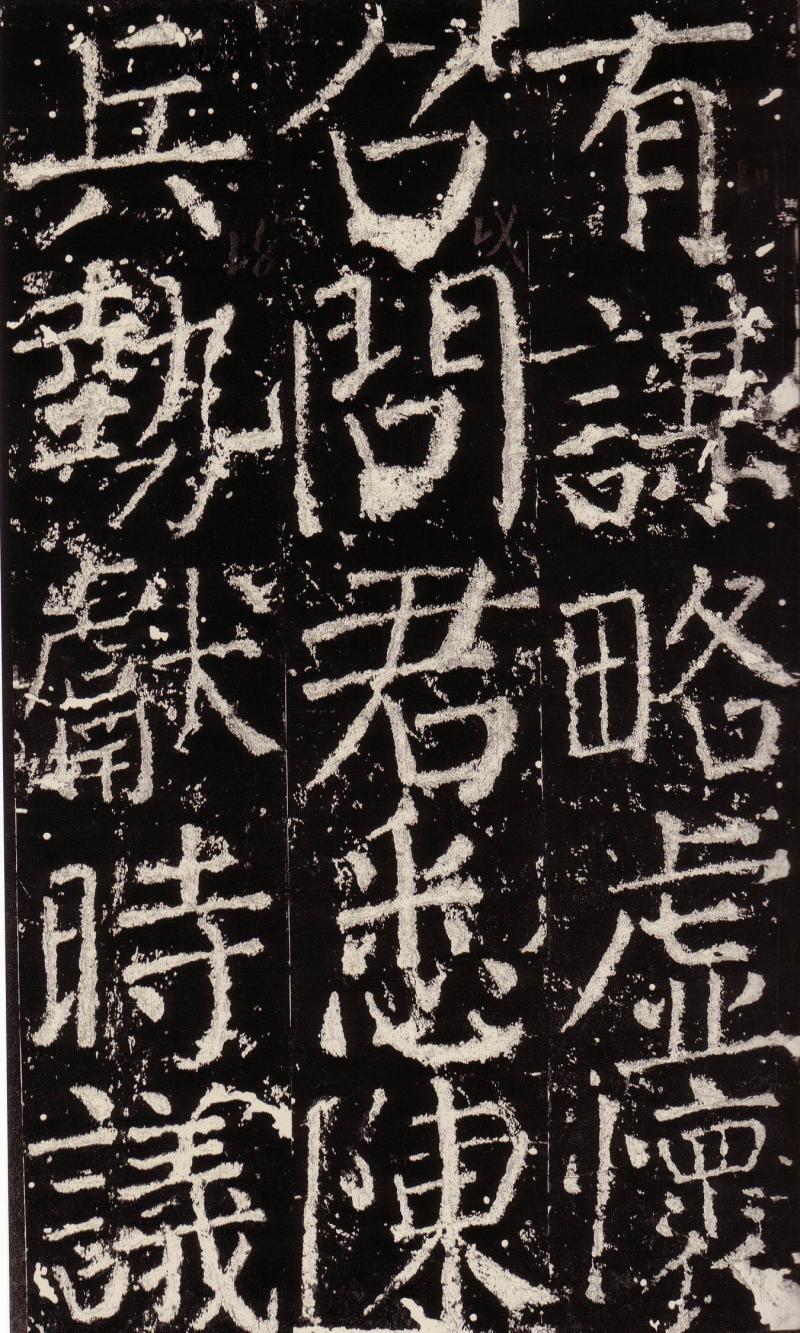 有謀略虛懷
召問君悉陳
兵勢獻時議